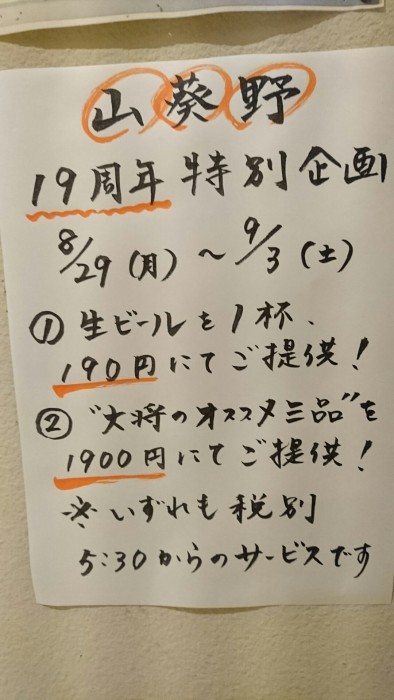 山葵野
19周年 特別企画
8/29(月)~9/3(土)
① 生ビールを1杯、
190円にてご提供!
② "大将のオススメ三品"を
1900円にてご提供!
※いずれも税別
5:30からのサービスです